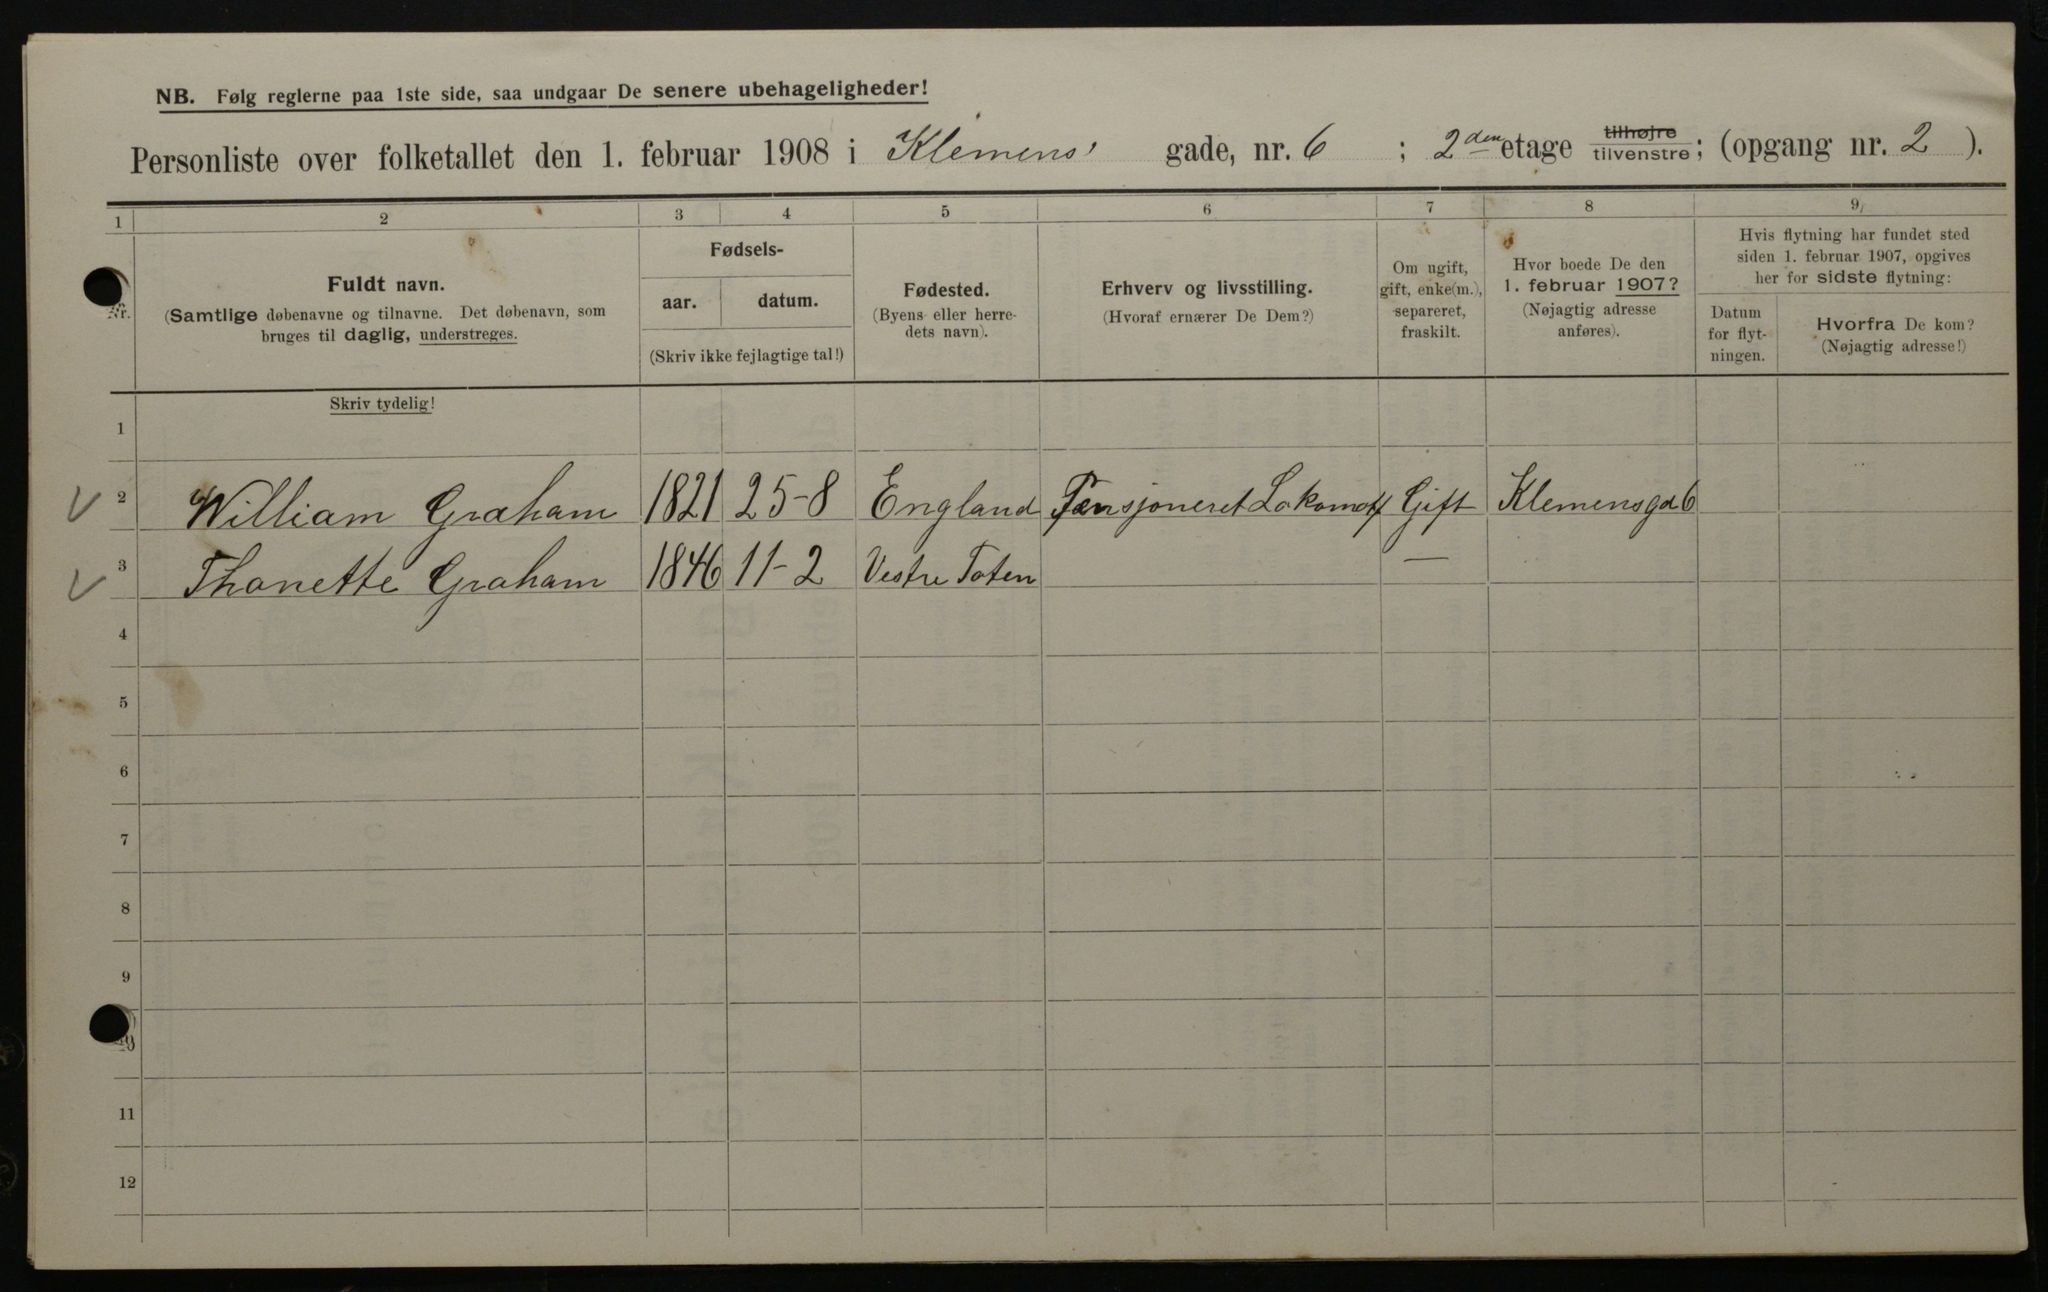 NB. Følg reglerne paa 1ste side, saa undgaar De senere ubehageligheder!
Personliste over folketallet den 1. februar 1908 i Klemens' gade, nr. 6 ; 2den etage tilhøjre tilvenstre; (opgang nr. 2 ).
1 2 3 4 5 6 7 8 9
Nr.
Fuldt navn.
(Samtlige døbenavne og tilnavne. Det døbenavn, som
bruges til daglig, understreges.
Fødsels-
aar. datum.
(Skriv ikke fejlagtige tal!)
Fødested.
(Byens eller herre-
dets navn).
Erhverv og livsstilling.
(Hvoraf ernærer De Dem?)
Om ugift,
gift, enke(m.),
separeret,
fraskilt.
Hvor boede De den
1. februar 1907?
(Nøjagtig adresse
anføres).
Hvis flytning har fundet sted
siden 1. februar 1907, opgives
her for sidste flytning:
Datum
for flyt-
ningen.
Hvorfra De kom?
(Nøjagtig adresse!)
Skriv tydelig!
1
2 William Graham 1821 25-8 England Pensjoneret Lokomotf Gift Klemensgd 6
3 Thonette Graham 1846 11-2 Vestre Toten —
4
5
6
7
8
9
10
11
12